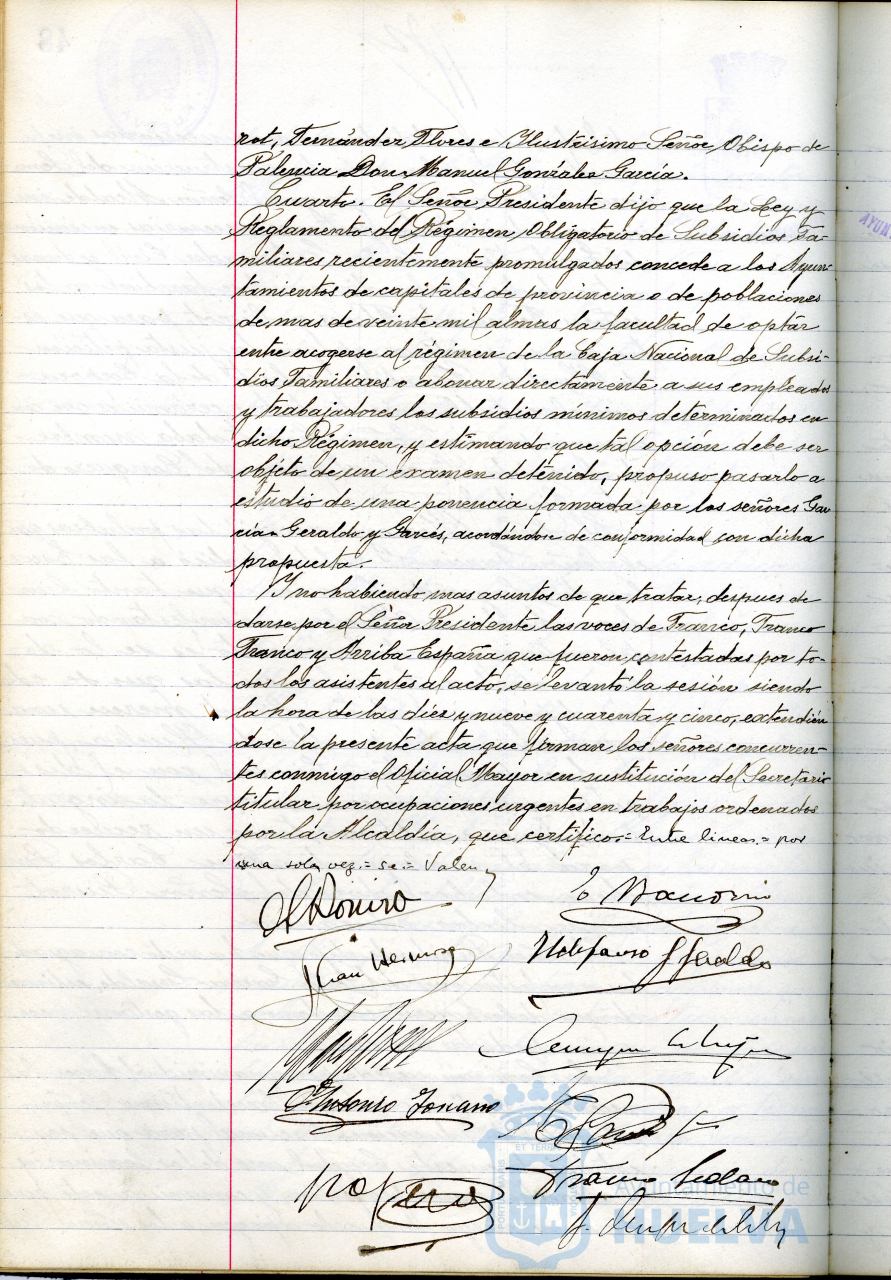 rot, Fernández Flores e Ilustrísimo Señor Obispo de
Palencia Don Manuel González García.
Cuarto. El Señor Presidente dijo que la Ley y
Reglamento del Régimen Obligatorio de Subsidios Fa-
miliares recientemente promulgados concede a los Ayun-
tamientos de capitales de provincia o de poblaciones
de mas de veinte mil almas la facultad de optar
entre acogerse al régimen de la Caja Nacional de Subsi-
dios Familiares o abonar directamente a sus empleados
y trabajadores los subsidios mínimos determinados en
dicho Régimen, y estimando que tal opción debe ser
objeto de un examen detenido, propuso pasarlo a
estudio de una ponencia formada por los señores Gar
cía Geraldo y Garcés, acordándose de conformidad con dicha
propuesta.
Y no habiendo mas asuntos de que tratar, despues de
darse por el Señor Presidente las voces de Franco, Franco
Franco y Arriba España que fueron contestadas por to-
dos los asistentes al acto, se levantó la sesión siendo
la hora de las diez y nueve y cuarenta y cinco, extendién
dose la presente acta que firman los señores concurren-
tes conmigo el Oficial Mayor en sustitución del Secretario
titular por ocupaciones urgentes en trabajos ordenados
por la Alcaldía, que certifico.= Entre lineas.= por
una sola vez.= se.= Valen
Juan Hermoso
Ildefonso G Geraldo
Antonio Toscano
Ayuntamiento de
HUELVA